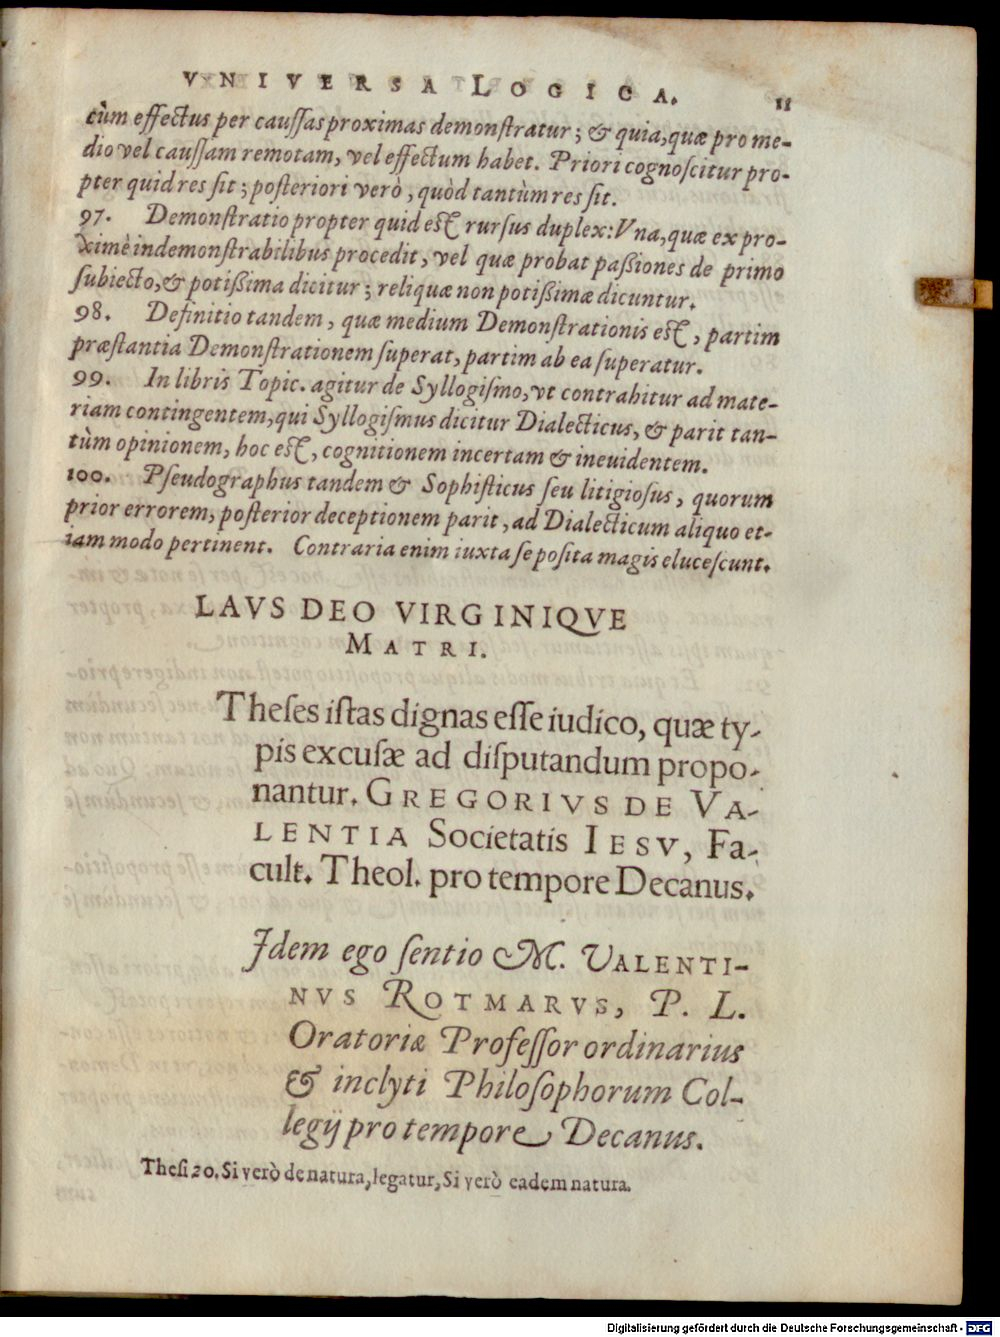 VNIVERSA LOGICA. 11
cùm effectus per cauſſas proximas demonſtratur; & quia, quæ pro me-
dio vel cauſſam remotam, vel effectum habet. Priori cognoſcitur pro-
pter quid res ſit; poſteriori verò, quòd tantùm res ſit.
97. Demonſtratio propter quid eſt rurſus duplex: Vna, quæ ex pro-
ximè indemonſtrabilibus procedit, vel quæ probat paßiones de primo
ſubiecto, & potißima dicitur; reliquæ non potißimæ dicuntur.
98. Definitio tandem, quæ medium Demonſtrationis eſt, partim
præſtantia Demonſtrationem ſuperat, partim ab ea ſuperatur.
99. In libris Topic. agitur de Syllogiſmo, vt contrahitur ad mate-
riam contingentem, qui Syllogiſmus dicitur Dialecticus, & parit tan-
tùm opinionem, hoc eſt, cognitionem incertam & ineuidentem.
100. Pſeudographus tandem & Sophiſticus ſeu litigioſus, quorum
prior errorem, poſterior deceptionem parit, ad Dialecticum aliquo et-
iam modo pertinent. Contraria enim iuxta ſe poſita magis eluceſcunt.
LAVS DEO VIRGINIQVE
MATRI.
Theſes iſtas dignas eſſe iudico, quæ ty-
pis excuſæ ad diſputandum propo-
nantur. GREGORIVS DE VA-
LENTIA Societatis IESV, Fa-
cult. Theol. pro tempore Decanus.
Idem ego ſentio M. VALENTI-
NVS ROTMARVS, P. L.
Oratoriæ Profeſſor ordinarius
& inclyti Philoſophorum Col-
legij pro tempore Decanus.
Theſi 20. Si verò de natura, legatur, Si verò eadem natura.
Digitalisierung gefördert durch die Deutsche Forschungsgemeinschaft - DFG